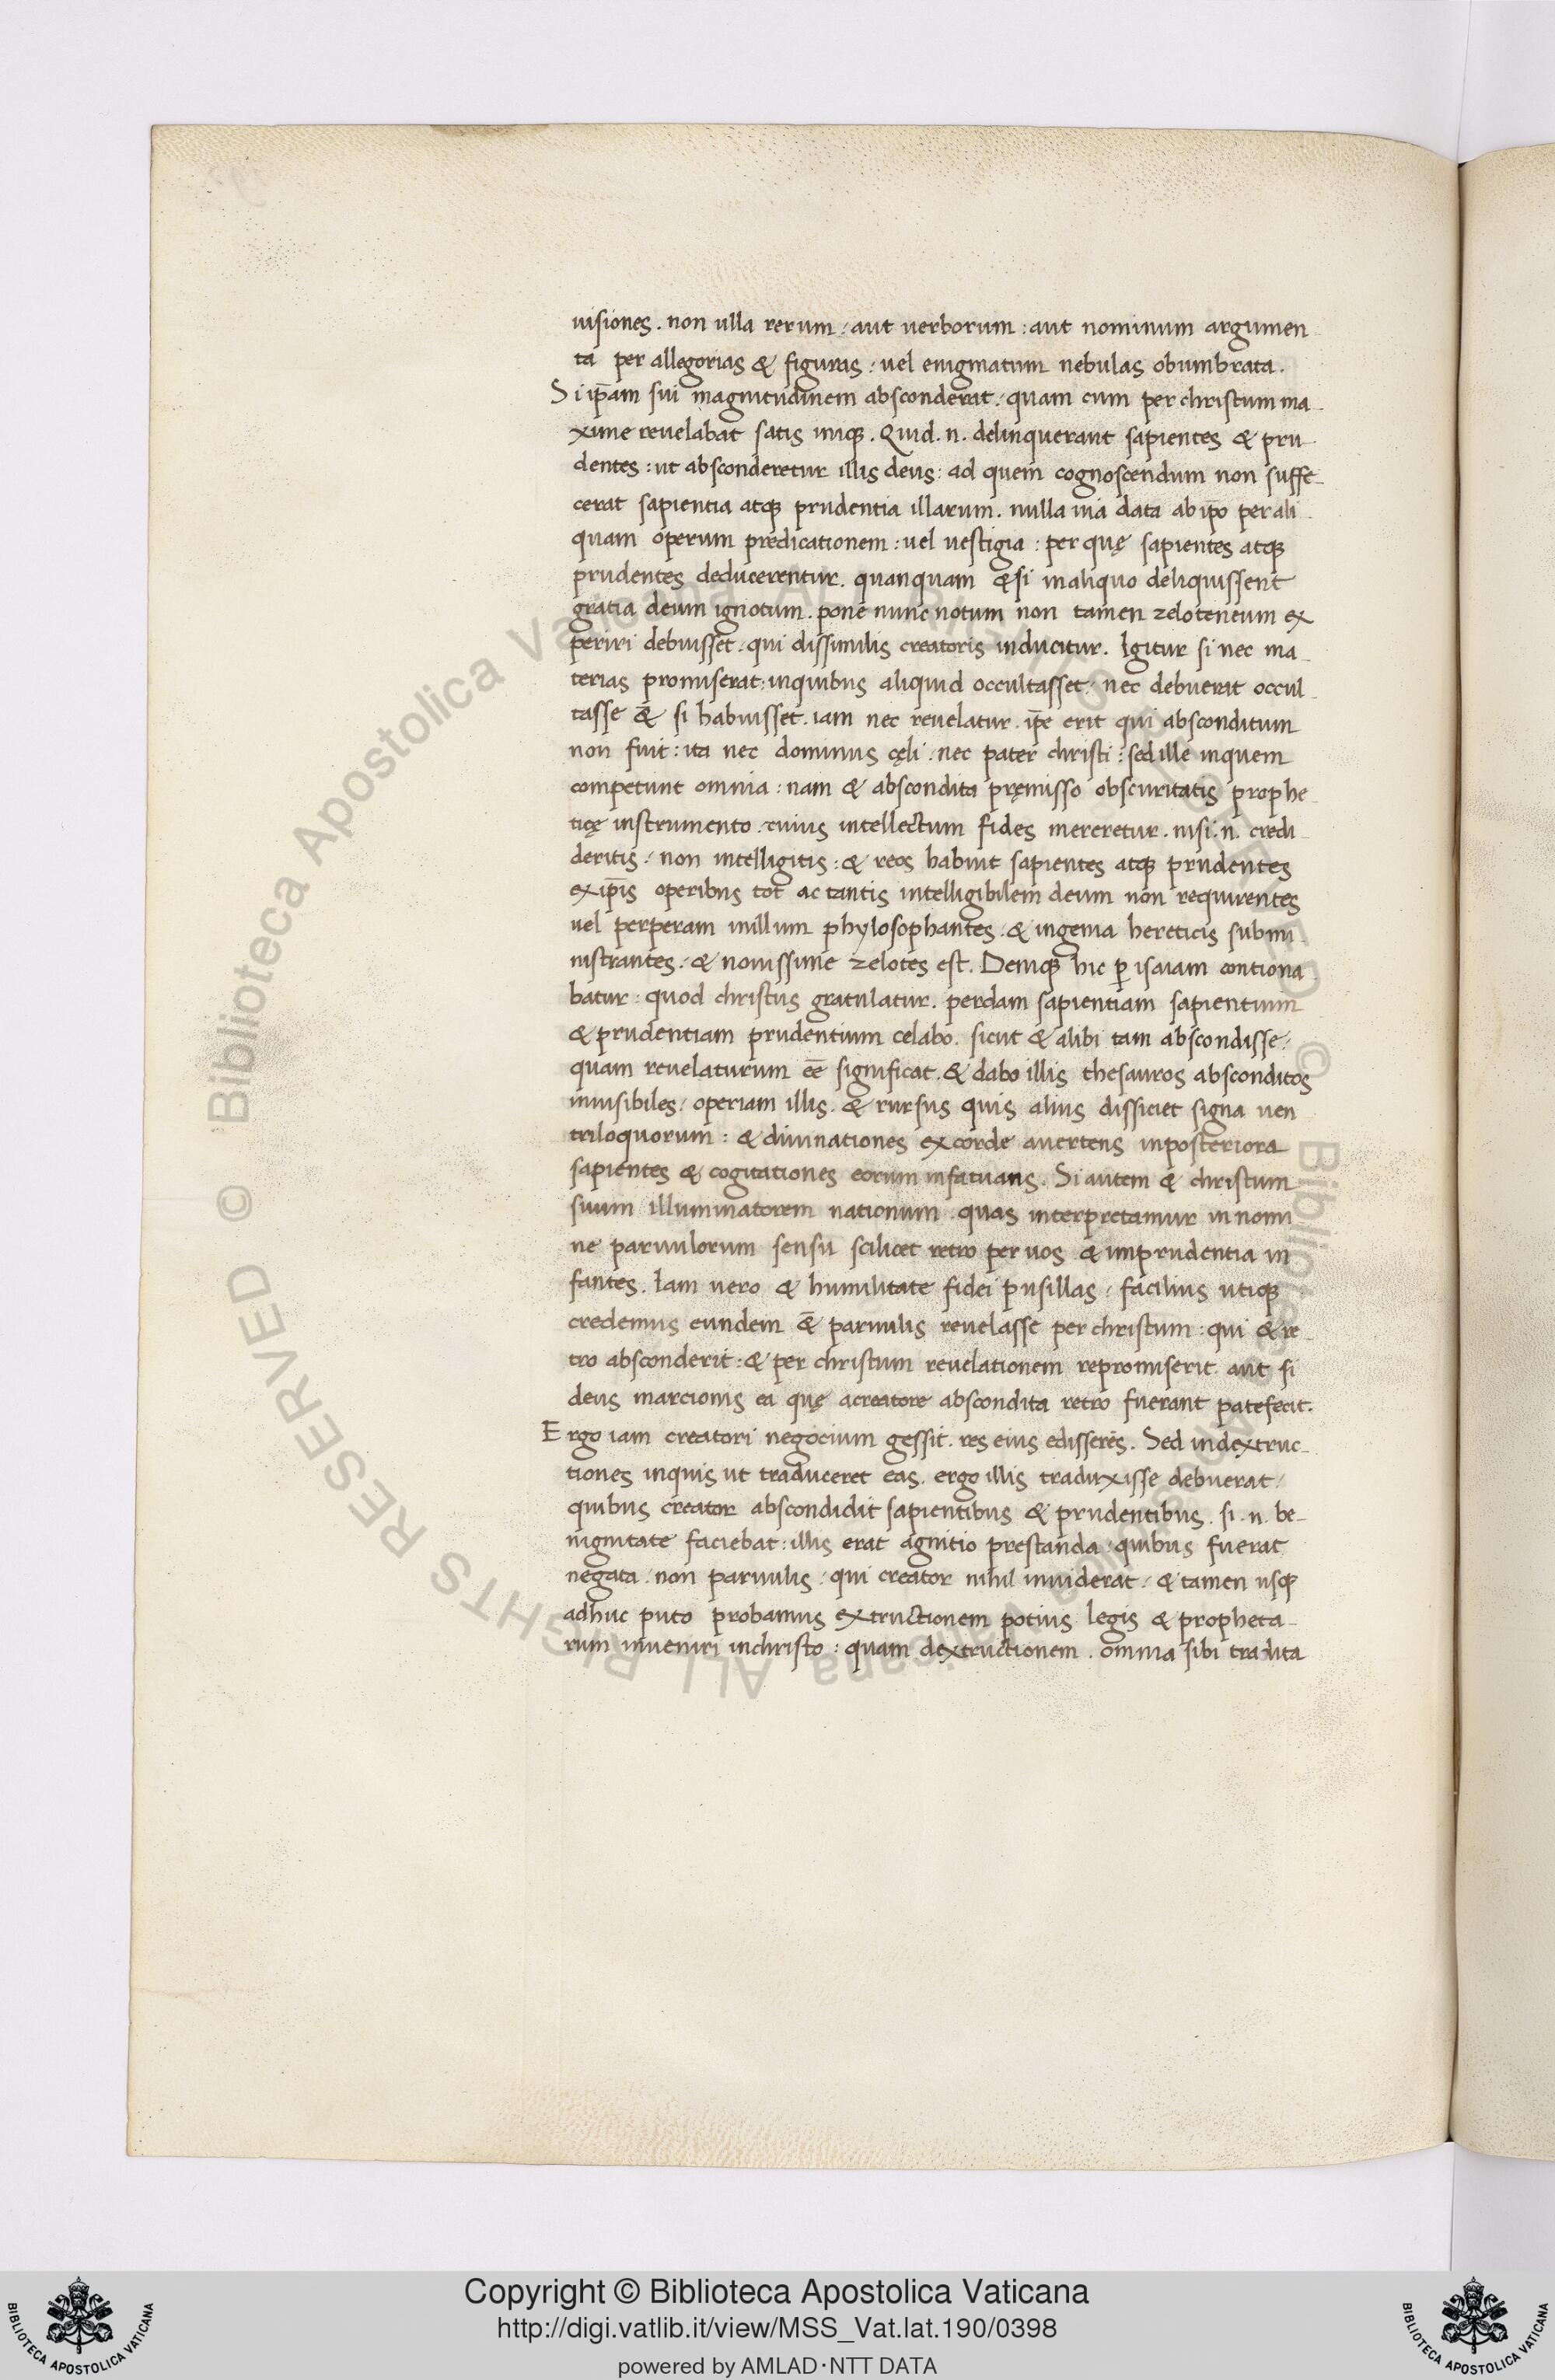 uisiones. non ulla rerum: aut uerborum: aut nominum argumen-
ta per allegorias & figuras: uel enigmatum nebulas obumbrata.
Si ip̄am sui magnitudinem absconderat: quam cum per christum ma-
xime reuelabat satis iniqꝫ. Quid .n. delinquerant sapientes & pru-
dentes: ut absconderetur illis deus: ad quem cognoscendum non suffe-
cerat sapientia atqꝫ prudentia illarum. nulla uia data ab ip̄o per ali-
quam operum predicationem: uel uestigia: per quę sapientes atqꝫ
prudentes deducerentur. quanquam & si in aliquo deliquissent
gratia deum ignotum. pone nunc notum non tamen zeloten eum ex
periri debuisset: qui dissimilis creatoris inducitur. Igitur si nec ma-
terias promiserat: in quibus aliquid occultasset: nec debuerat occul-
tasse &̄ si habuisset. iam nec reuelatur. ip̄e erit qui absconditum
non fuit: ita nec dominus cęli: nec pater christi: sed ille in quem
competunt omnia: nam & abscondita pręmisso obscuritatis prophe-
ticę instrumento. cuius intellectum fides mereretur. nisi .n. credi-
deritis: non intelligitis: & reos habuit sapientes atqꝫ prudentes
ex ip̄is operibus tot ac tantis intelligibilem deum non requirentes
uel perperam in illum phylosophantes. & ingenia hereticis submi-
nistrantes: & nouissime zelotes est. Deniqꝫ hic ꝑ isaiam contiona
batur: quod christus gratulatur. perdam sapientiam sapientium
& prudentiam prudentium celabo. sicut & alibi tam abscondisse:
quam reuelaturum eē significat. & dabo illis thesauros absconditos
inuisibiles: operiam illis. & rursus quis alius dissiciet signa uen
triloquorum: & diuinationes ex corde auertens in posteriora
sapientes & cogitationes eorum infatuans. Si autem & christum
suum illuminatorem nationum. quas interpretamur in nomi
ne paruulorum sensu scilicet retro per uos & imprudentia in
fantes. Iam uero & humilitate fidei pusillas: facilius utiqꝫ
credemus eundem &̄ paruulis reuelasse per christum: qui & re-
tro absconderit: & per christum reuelationem repromiserit. aut si
deus marcionis ea quę a creatore abscondita retro fuerant patefecit.
Ergo iam creatori negocium gessit. res eius edisserēs. Sed in dextruc-
tiones inquis ut traduceret eas. ergo illis traduxisse debuerat:
quibus creator abscondidit sapientibus & prudentibus. si .n. be-
nignitate faciebat: illis erat agnitio prestanda: quibus fuerat
negata: non paruulis: qui creator nihil inuiderat: & tamen usqꝫ
adhuc puto probamus extructionem potius legis & propheta-
rum inueniri in christo: quam dextructionem. omnia sibi tradita
Copyright © Biblioteca Apostolica Vaticana
http://digi.vatlib.it/view/MSS_Vat.lat.190/0398
powered by AMLAD·NTT DATA
BIBLIOTECA APOSTOLICA VATICANA
BIBLIOTECA APOSTOLICA VATICANA
© Biblioteca Apostolica Vaticana ALL RIGHTS RESERVED
© Biblioteca Apostolica Vaticana ALL RIGHTS RESERVED